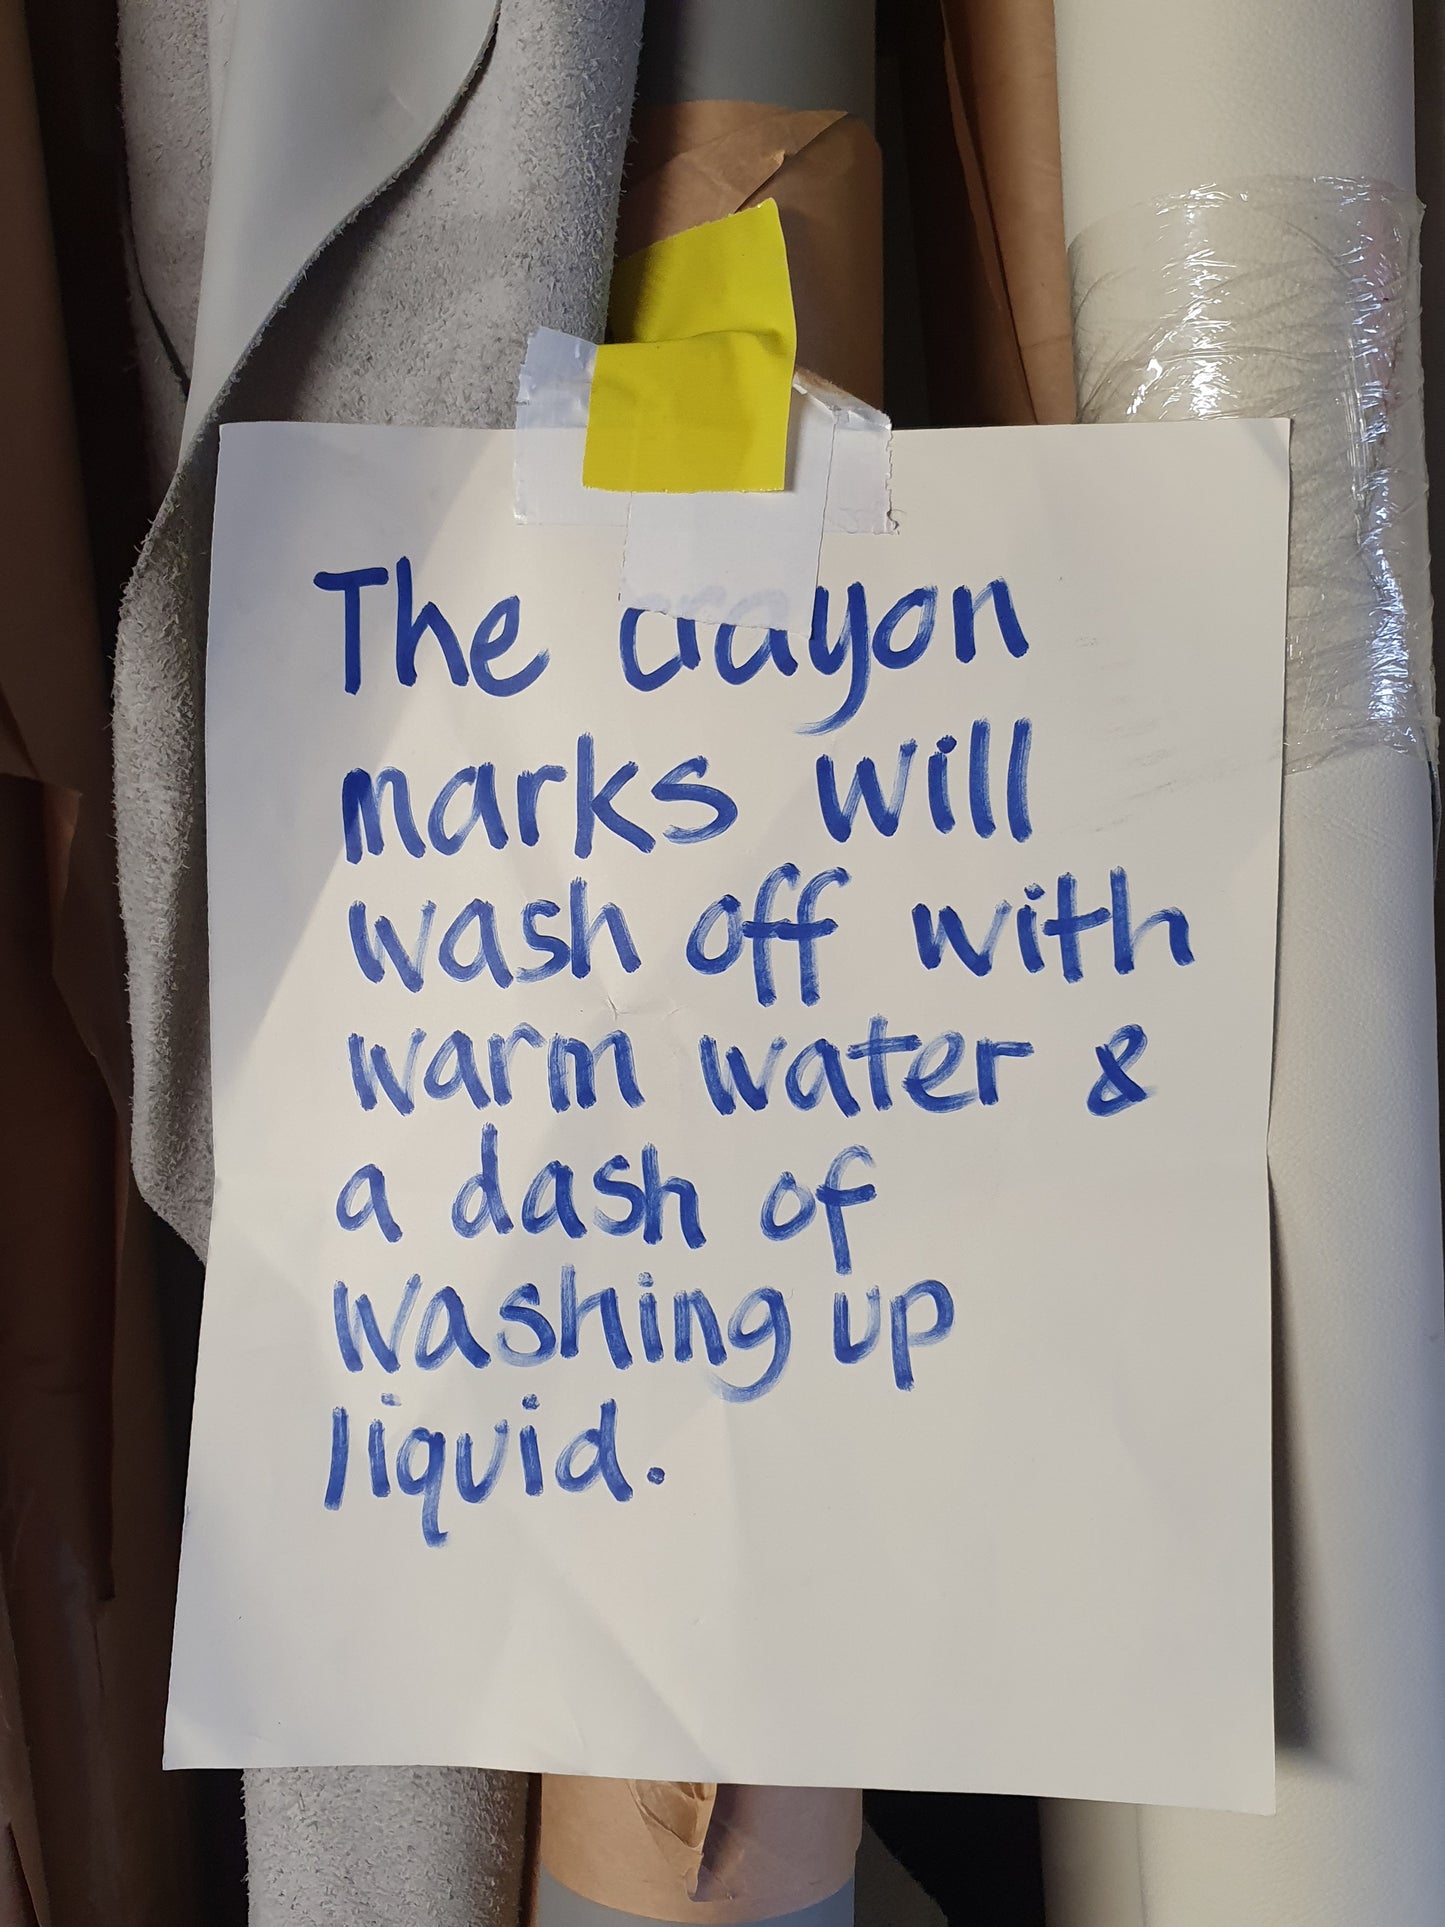 The crayon
marks will
wash off with
warm water &
a dash of
washing up
liquid.